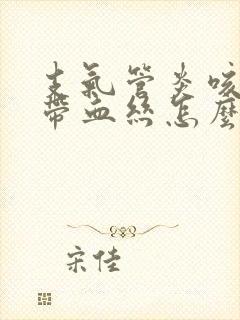 支氣管炎咳
帶血絲怎麼
宋佳